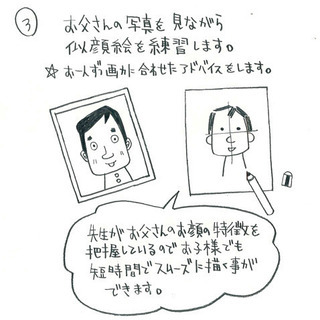 ③ お父さんの写真を見ながら
似顔絵を練習します。
☆ お一人ずつ画力に合わせたアドバイスをします。
先生がお父さんのお顔の特徴を
把握しているのでお子様でも
短時間でスムーズに描く事が
できます。